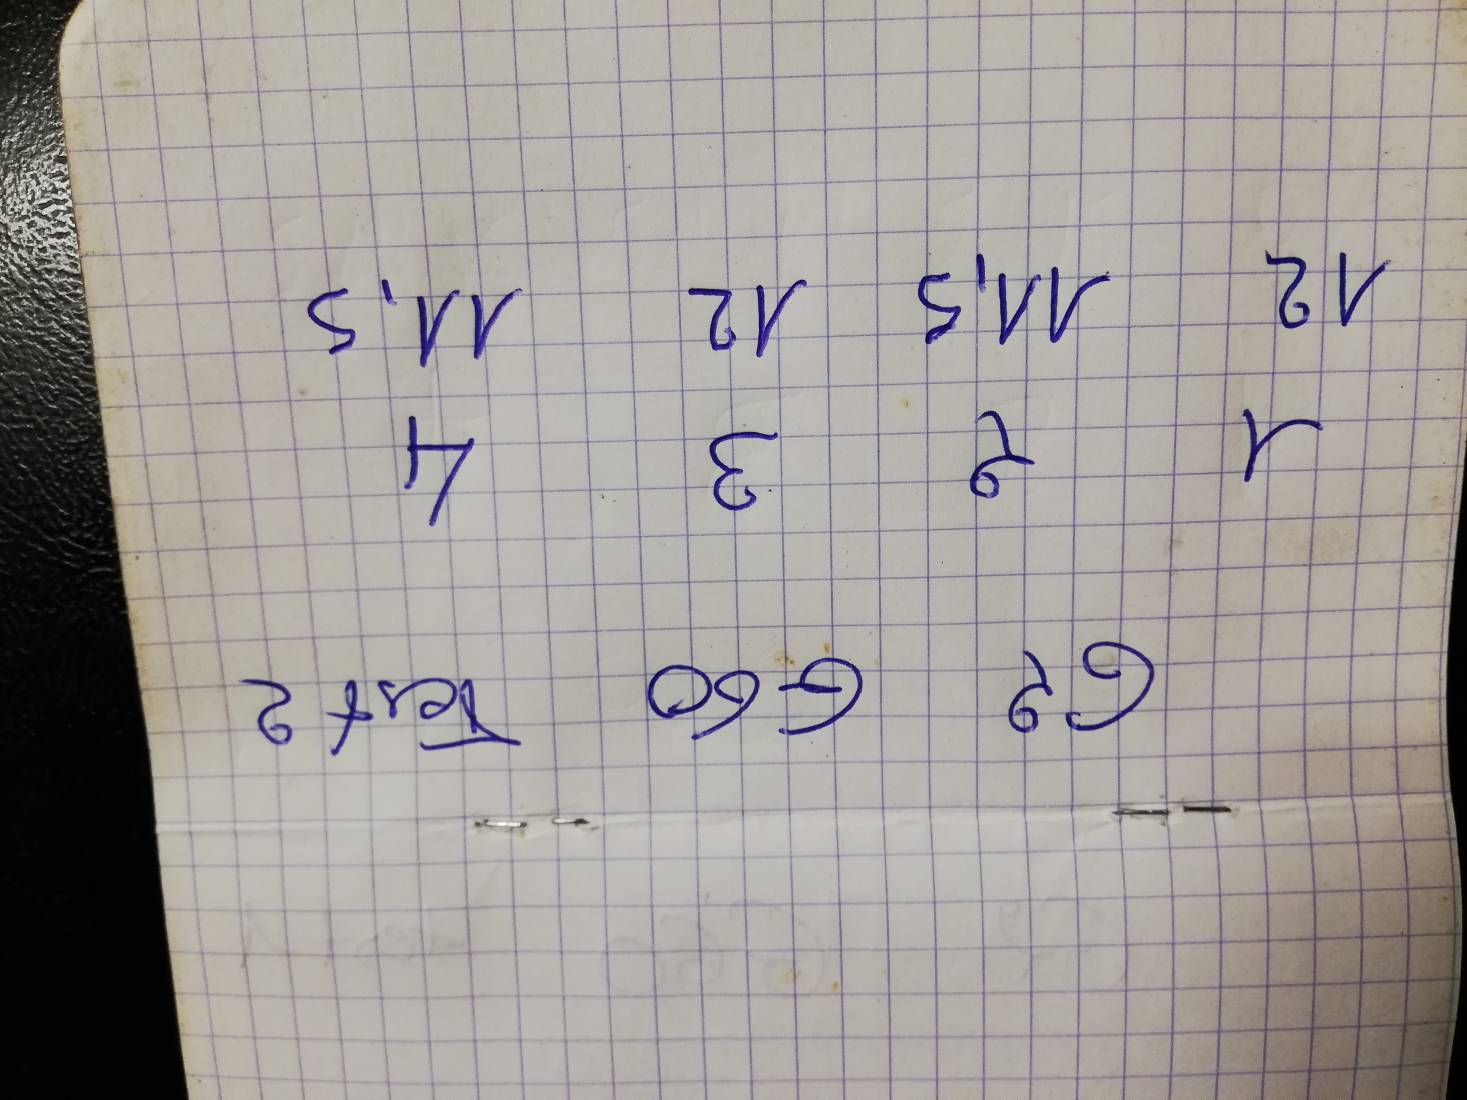 G2 G60 Test 2
1 2 3 4
12 11,5 12 11,5